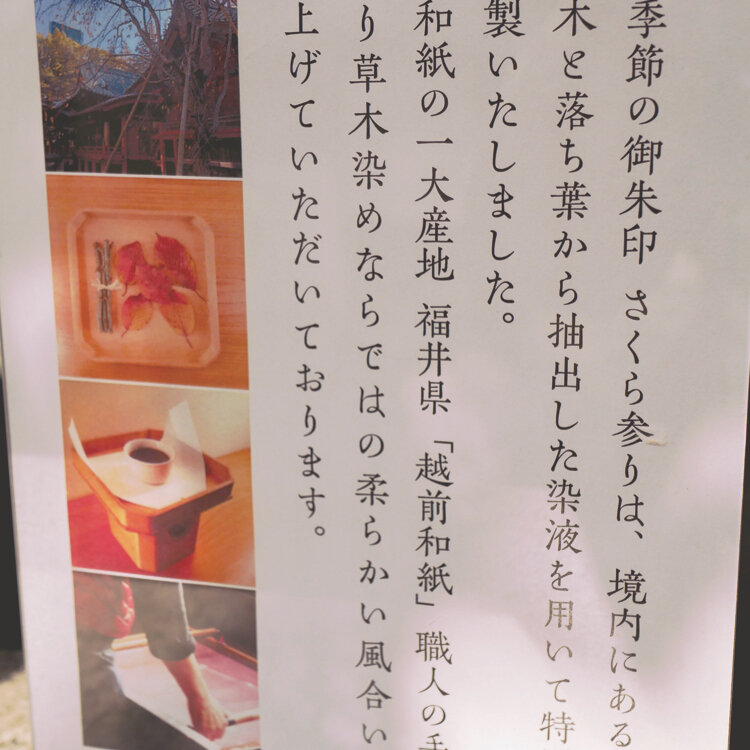 季節の御朱印 さくら参りは、境内にある
木と落ち葉から抽出した染液を用いて特
製いたしました。
和紙の一大産地 福井県「越前和紙」職人の手
り草木染めならではの柔らかい風合い
上げていただいております。